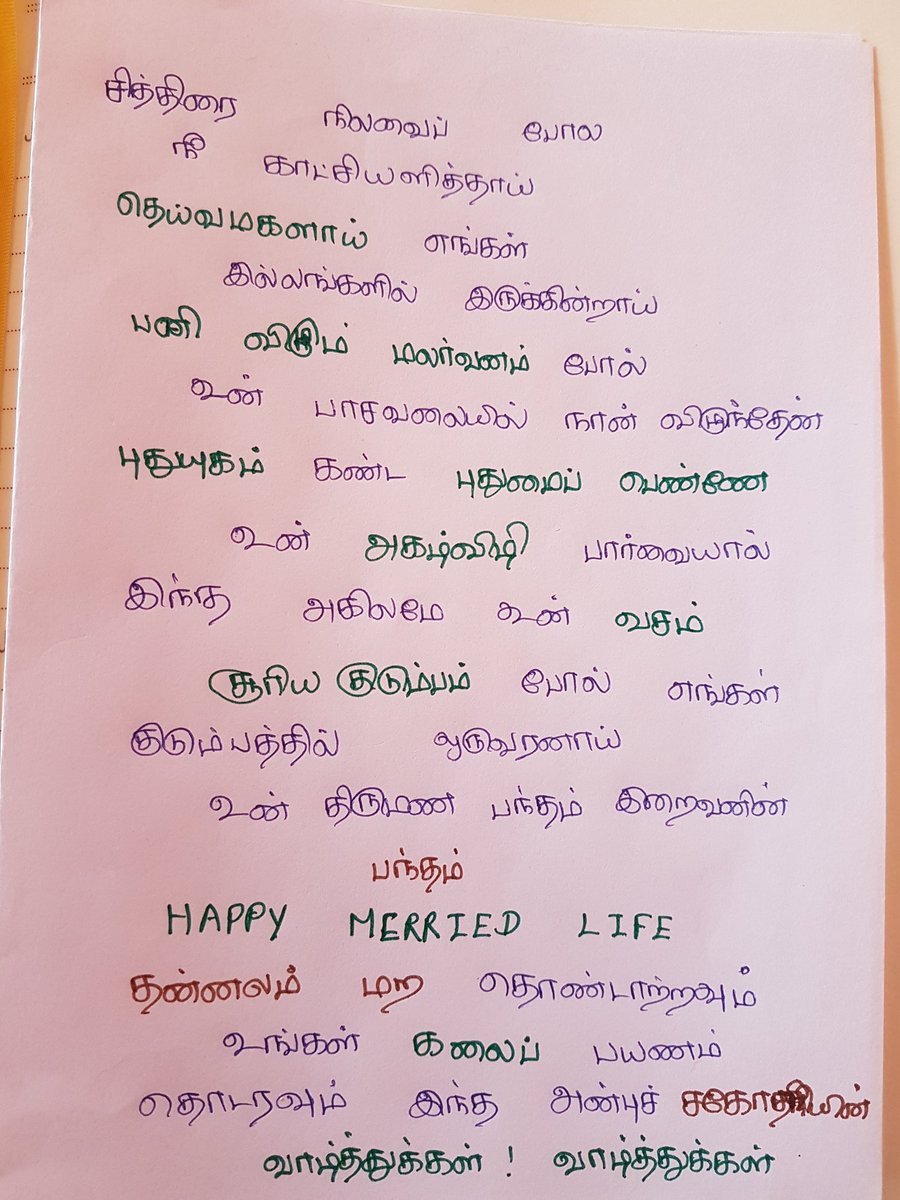 சித்திரை நிலவைப் போல
நீ காட்சியளித்தாய்
தெய்வமகளாய் எங்கள்
இல்லங்களில் இருக்கின்றாய்
பனி விழும் மலர்வனம் போல்
உன் பாசவலையில் நான் விழுந்தேன்
புதுயுகம் கண்ட புதுமைப் பெண்ணே
உன் அகழ்விழி பார்வையால்
இந்த அகிலமே உன் வசம்
சூரிய குடும்பம் போல் எங்கள்
குடும்பத்தில் ஒருவரனாய்
உன் திருமண பந்தம் இறைவனின்
பந்தம்
HAPPY MERRIED LIFE
தன்னலம் மற தொண்டாற்றவும்
உங்கள் கலைப் பயணம்
தொடரவும் இந்த அன்புச் சகோதரியின்
வாழ்த்துக்கள் ! வாழ்த்துக்கள்